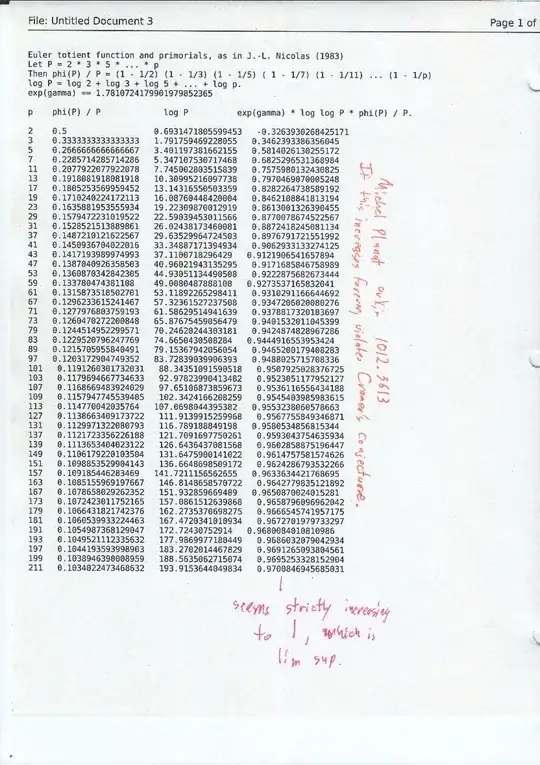 File: Untitled Document 3
Page 1 of
Euler totient function and primorials, as in J.-L. Nicolas (1983)
Let P = 2 * 3 * 5 * ... * p
Then phi(P) / P = (1 - 1/2) (1 - 1/3) (1 - 1/5) ( 1 - 1/7) (1 - 1/11) ... (1 - 1/p)
log P = log 2 + log 3 + log 5 + ... + log p.
exp(gamma) == 1.7810724179901979852365
p phi(P) / P log P exp(gamma) * log log P * phi(P) / P.
2 0.5 0.6931471805599453 -0.3263930268425171
3 0.3333333333333333 1.791759469228055 0.3462393386356045
5 0.2666666666666667 3.401197381662155 0.5814026130255172
7 0.2285714285714286 5.347107530717468 0.6825296531368984
11 0.2077922077922078 7.745002803515839 0.7575980132430825
13 0.1918081918081918 10.30995216097738 0.7970469070005248
17 0.1805253569959452 13.14316550503359 0.8282264738589192
19 0.1710240224172113 16.08760448420004 0.8462108841813194
23 0.1635881953555934 19.22309870012919 0.8613001326390455
29 0.1579472231019522 22.59039453011566 0.8770078674522567
31 0.1528521513889861 26.02438173460081 0.8872418245081134
37 0.1487210121622567 29.63529964724503 0.8976791721551992
41 0.1450936704022016 33.34887171394934 0.9062933133274125
43 0.1417193989974993 37.1100718296429 0.9121906541657894
47 0.1387040926358503 40.96021943135295 0.9171685846758989
53 0.1360870342842305 44.93051134490508 0.9222875682673444
59 0.133780474381108 49.0080487888108 0.9273537165832041
61 0.1315873518502701 53.11892265298411 0.9310291166644692
67 0.1296233615241467 57.32361527237508 0.9347206020080276
71 0.1277976803759193 61.58629514941639 0.9378817320183697
73 0.1260470272200848 65.87675459056479 0.9401532011045399
79 0.1244514952299571 70.24628244303181 0.9424874828967286
83 0.1229520796247769 74.6650430508284 0.9444916553953424
89 0.1215705955840491 79.15367942056054 0.9465200179408283
97 0.1203172904749352 83.72839039906393 0.9488025715708336
101 0.1191260301732031 88.34351091590518 0.9507925028376725
103 0.1179694667734633 92.97823990413482 0.9523051177952127
107 0.1168669483924029 97.65106873859673 0.9536116556434188
109 0.1157947745539405 102.3424166208259 0.9545403985983615
113 0.114770042035764 107.0698044395382 0.9553238060578663
127 0.1138663409173722 111.9139915259968 0.9567755849346871
131 0.1129971322080793 116.789188849198 0.9580534856815344
137 0.1121723356226188 121.7091697750261 0.9593043754635934
139 0.1113653404023122 126.6436437081568 0.9602858875196447
149 0.1106179220103504 131.6475900141022 0.9614757581574626
151 0.1098853529904143 136.6648698509172 0.9624286793532266
157 0.109185446283469 141.7211156562555 0.9633634421768695
163 0.1085155969197667 146.8148658570722 0.9642779835121892
167 0.1078658029262352 151.932859669489 0.9650870024015281
173 0.1072423011752165 157.0861512639868 0.9658796096962042
179 0.1066431821742376 162.2735370698275 0.9666545741957175
181 0.1060539933224463 167.4720341010934 0.9672701979733297
191 0.1054987368129047 172.72430752914 0.9680084010810986
193 0.1049521112335632 177.9869977180449 0.9686032079042934
197 0.1044193593998903 183.2702014467829 0.9691265093804561
199 0.1038946390008959 188.5635062715074 0.9695253328152904
211 0.1034022473468632 193.9153644049834 0.9700846945685031
Michel Planat arXiv 1012.3613
If this increases forever, violates Cramer's conjecture.
seems strictly increasing
to 1, which is
lim sup.